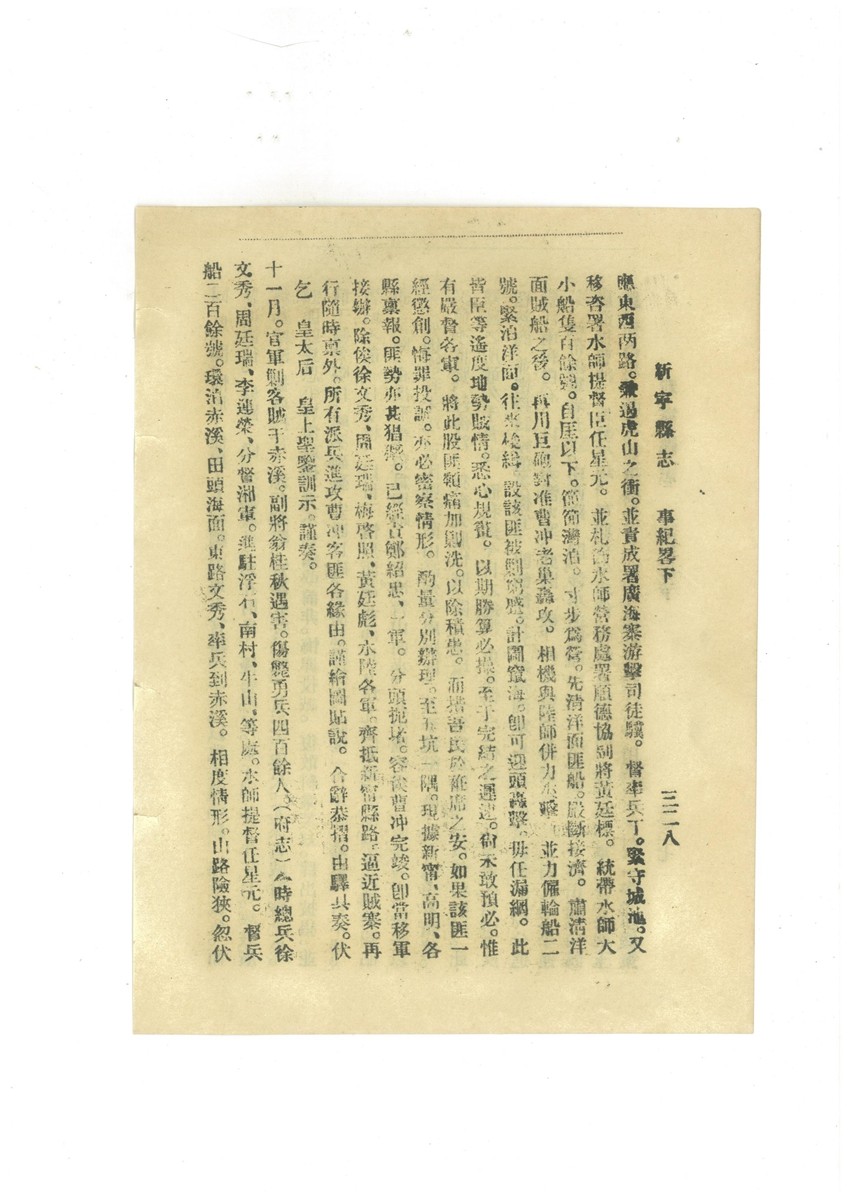 新寧縣志　事紀畧下　三二八
應東西两路。乘過虎山之衝。並責成署廣海寨游擊司徒驥。督率兵丁。緊守城池。又
移咨署水師提督臣任星元。並札飭水師營務處署順德協副將黃廷標。統帶水師大
小船隻百餘號。自厓以下。節節灣泊。寸步爲營。先清洋面匪船。嚴斷接濟。肅清洋
面賊船之後。再用巨礮對准曹冲老巢轟攻。相機與陸師併力夾擊。並力僱輪船二
號。緊泊洋面。往來梭緝。設該匪被剿窮蹙。計圖竄海。卽可迎頭轟擊。毋任漏網。此
皆臣等遙度地勢賊情。悉心規復。以期勝算必操。至于完結之遲速。尙未敢預必。惟
有嚴督各軍。將此股匪類痛加剿洗。以除積患。而措吾民於袵席之安。如果該匪一
經懲創。悔罪投誠。亦必密察情形。酌量分別辦理。至五坑一隅。現據新甯、高明、各
縣禀報。匪勢亦甚猖獗。已經責鄭紹忠、一軍。分頭扼堵。容俟曹冲完竣。卽當移軍
接辦。除俟徐文秀、周廷瑞、梅啓照、黃廷彪、水陸各軍。齊抵新甯縣路。逼近賊寨。再
行隨時禀外。所有派兵進攻曹冲客匪各緣由。謹繪圖貼說。合辭恭摺。由驛具奏。伏
乞　皇太后　皇上聖鑒訓示。謹奏。
十一月。官軍剿客賊于赤溪。副將翁桂秋遇害。傷斃勇兵四百餘人（府志）時總兵徐
文秀、周廷瑞、李運榮、分督湘軍。進駐浮石、南村、牛山、等處。水師提督任星元。督兵
船二百餘號。環泊赤溪、田頭海面。東路文秀、率兵到赤溪。相度情形。山路險狹。忽伏